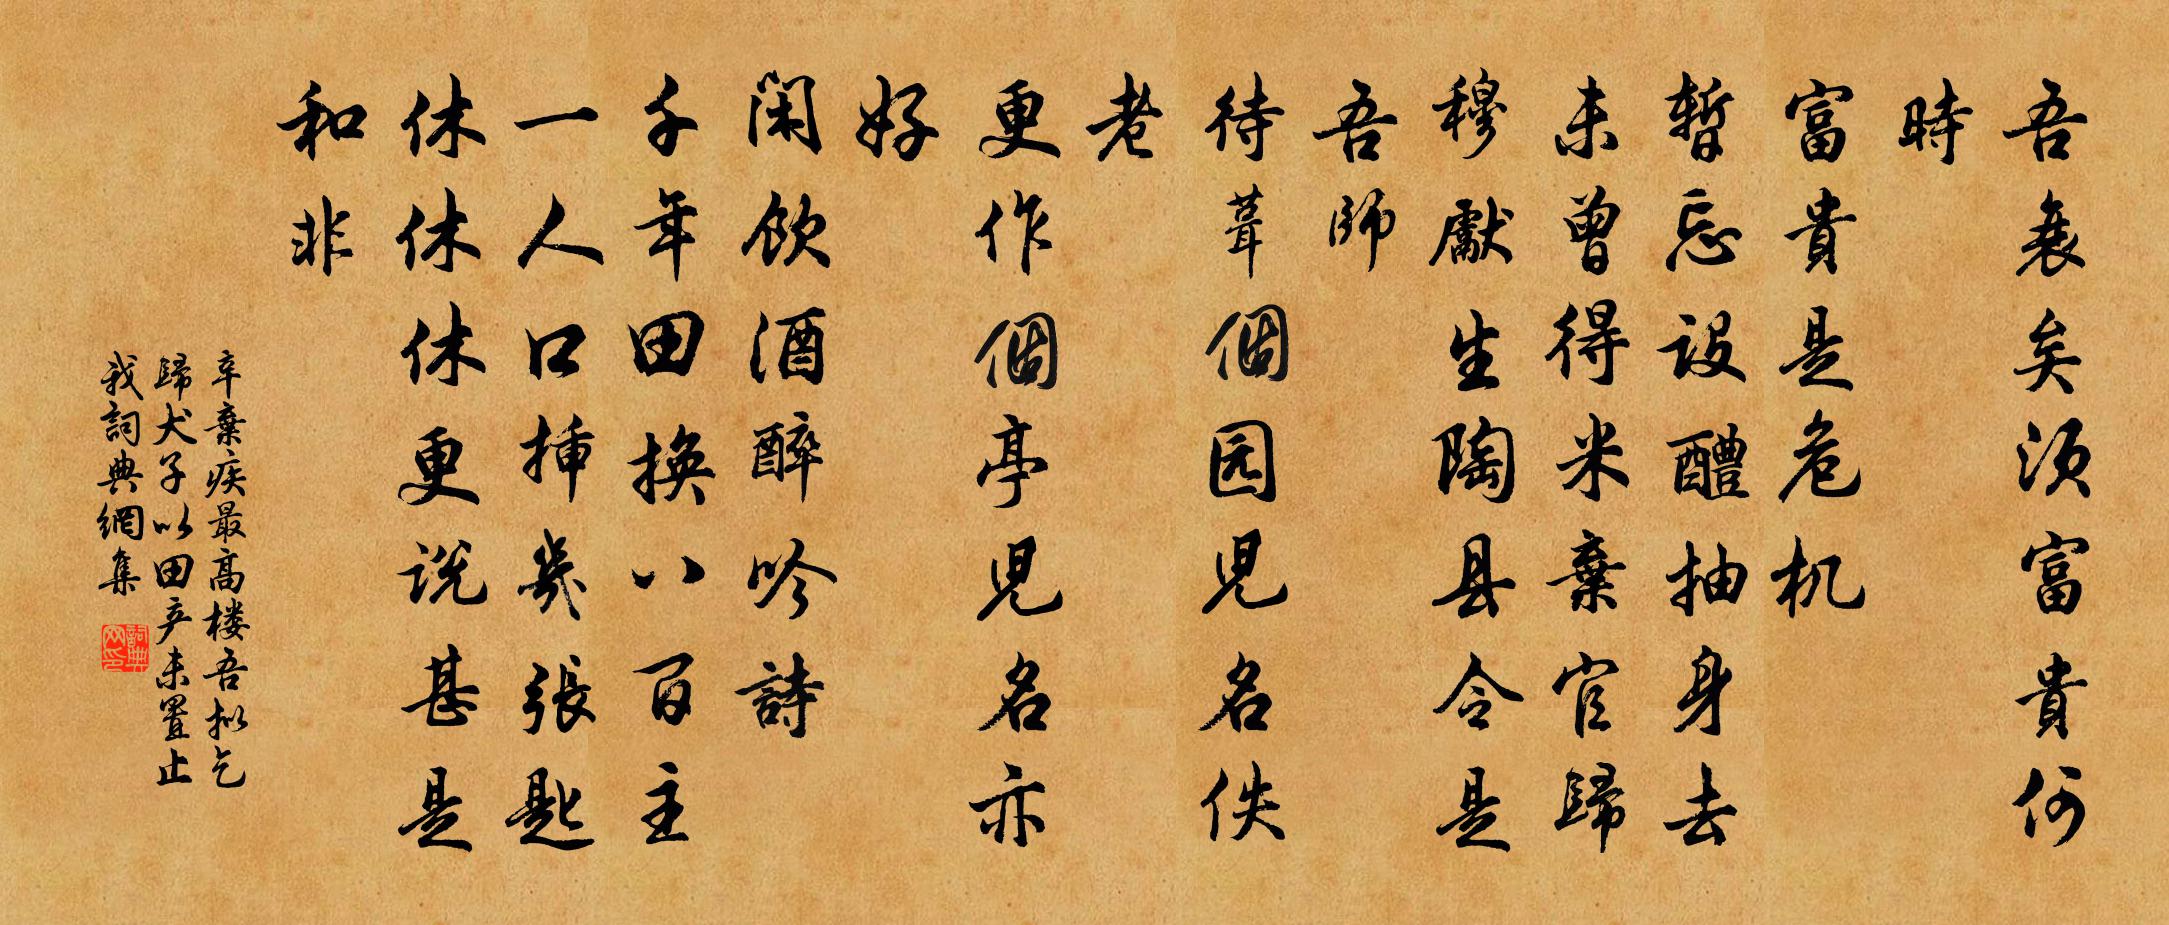 吾衰矣须富貴何
時
富貴是危机
暫忘設醴抽身去
未曾得米棄官歸
穆獻生陶县令是
吾師
待葺個园児名佚
老
更作個亭児名亦
好
閑飲酒醉吟詩
千年田換八百主
一人口挿幾張匙
休休休更説甚是
和非
辛棄疾最高楼吾拟乞
歸犬子以田产未置止
我詞典網集
詞典
网印